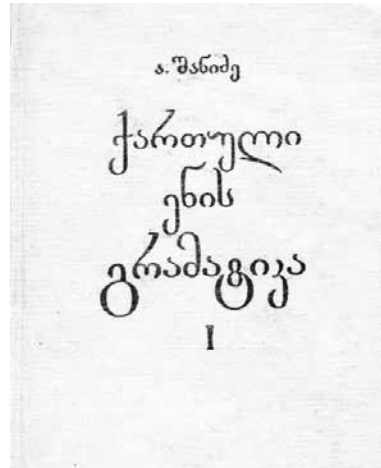 ა. შანიძე
ქართული
ენის
გრამატიკა
I